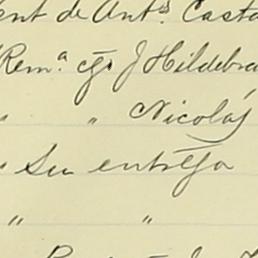 ent de Ant.s Casta
Rem.a cgo J Hildebra
" " Nicolás
" Su entrega
" "